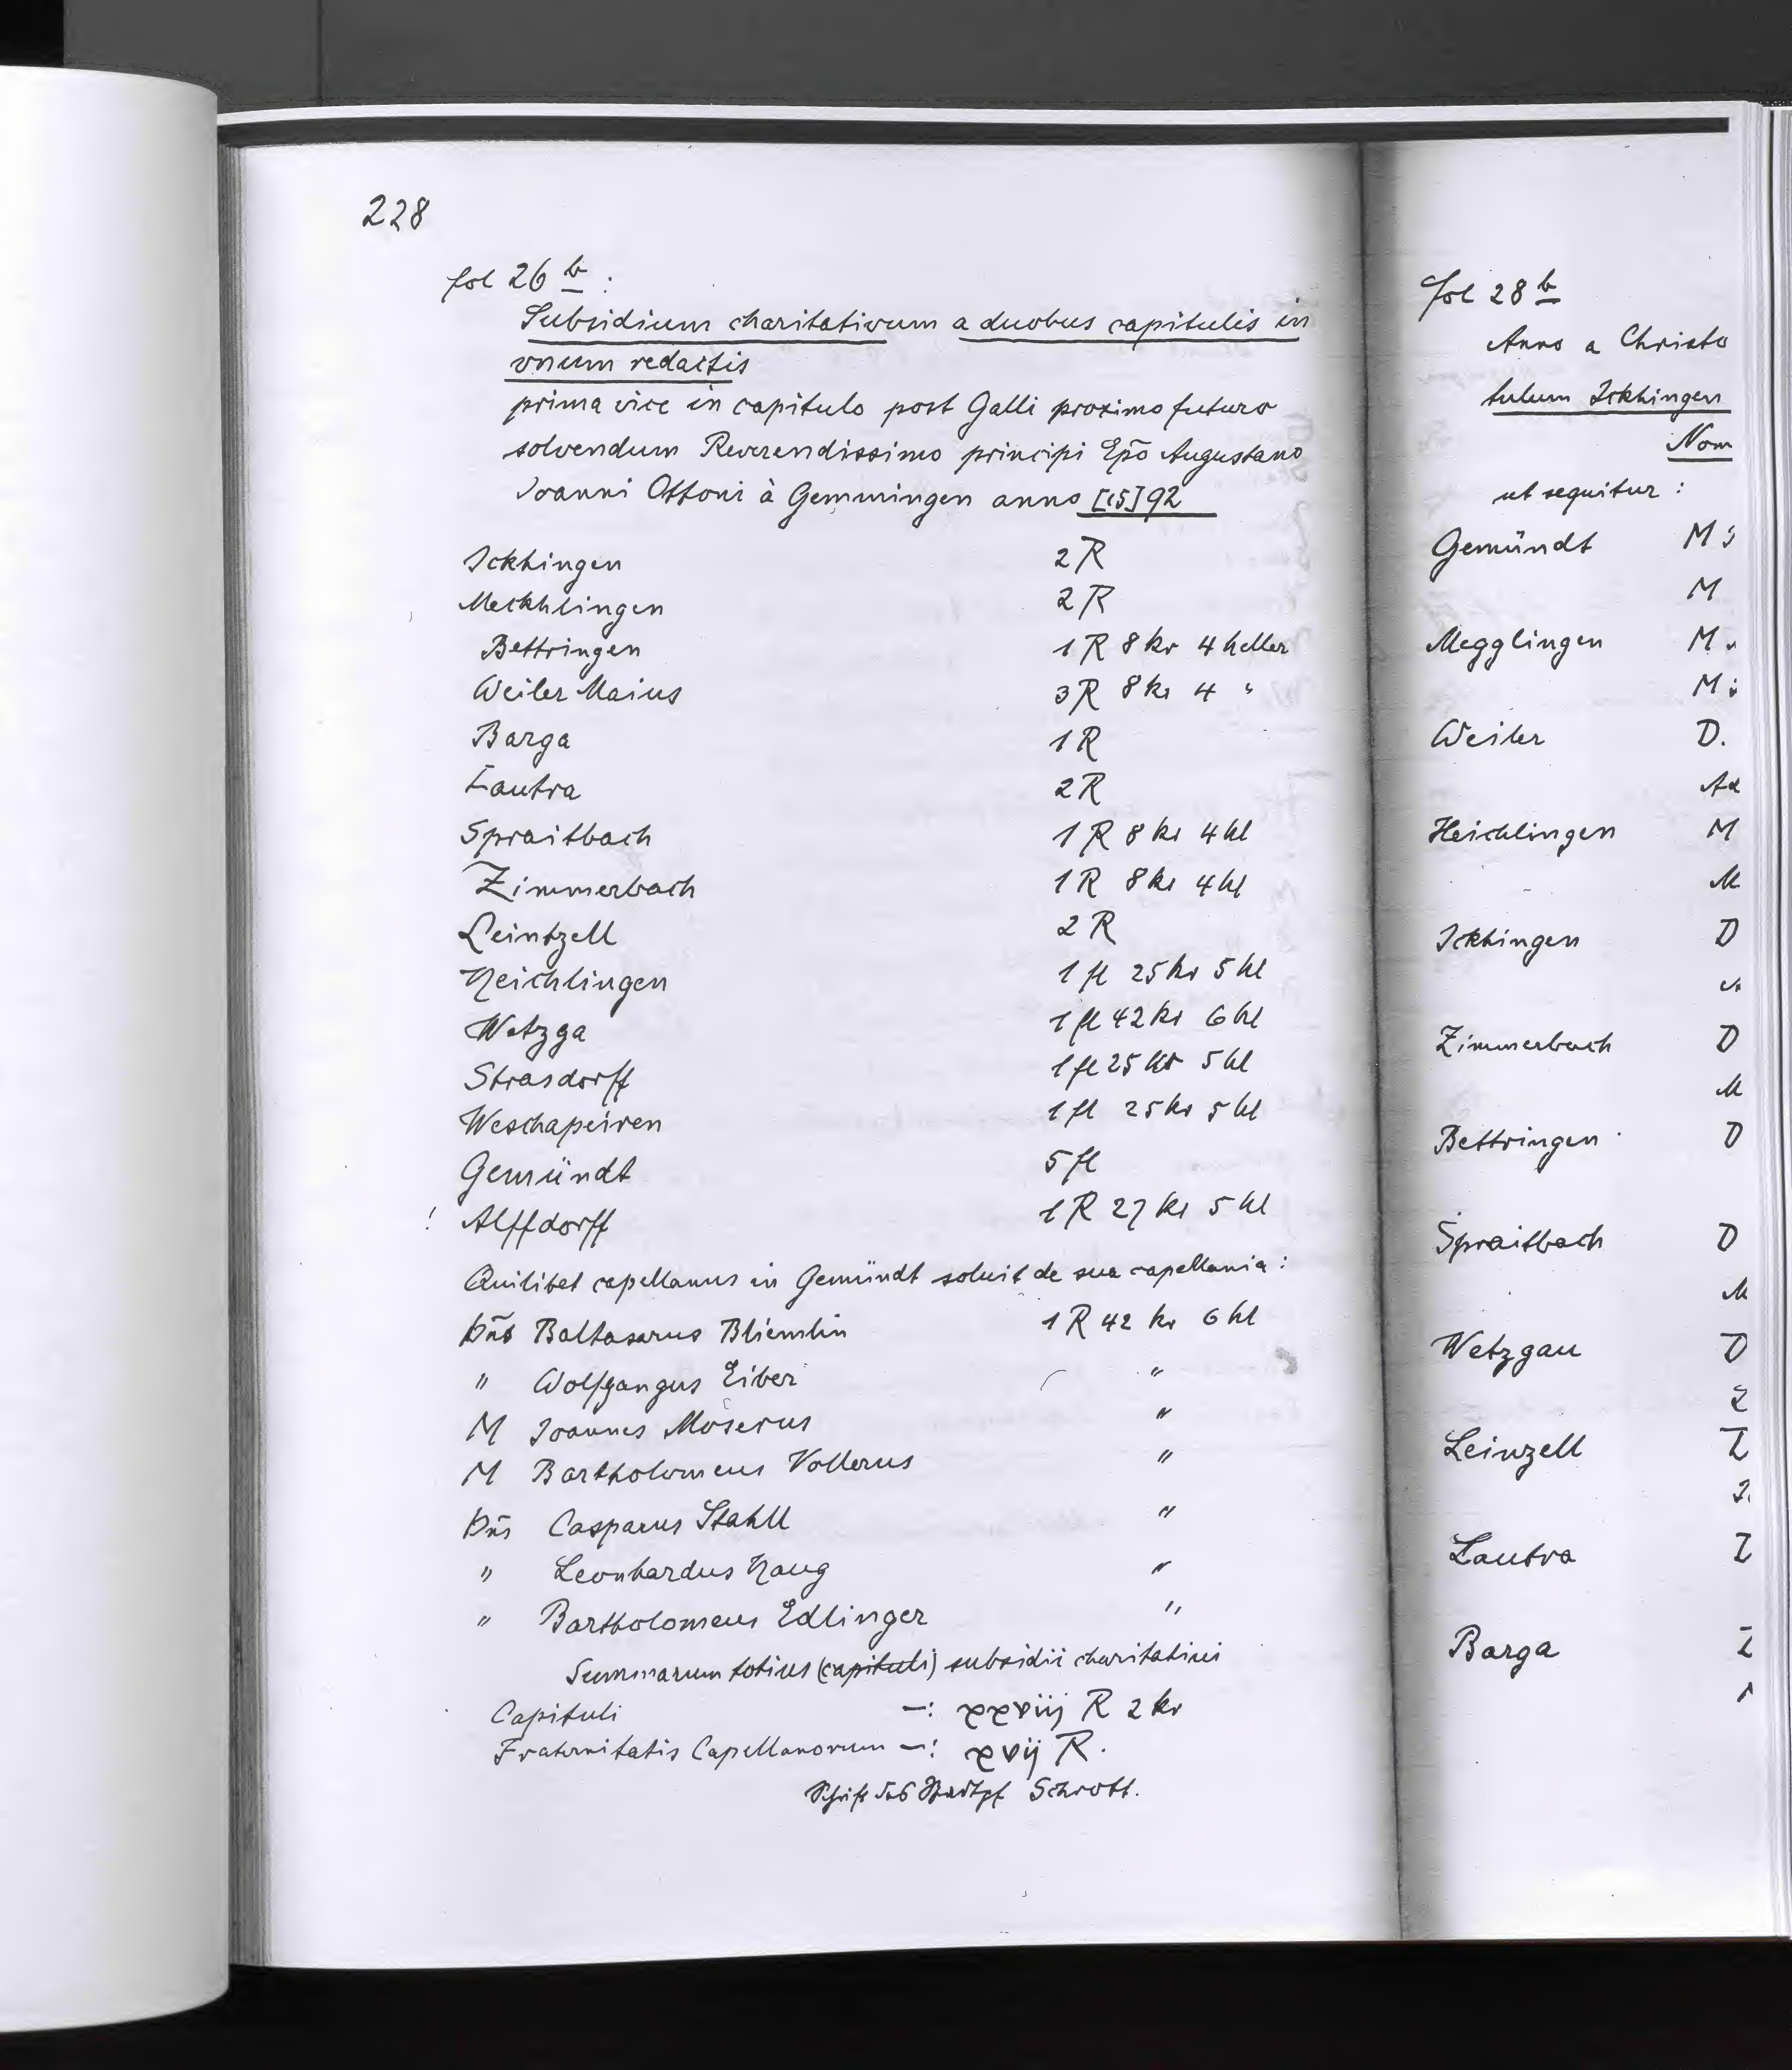 228
fol 26 b :
Subsidium charitativum a duobus capitulis in
vnum redactis
prima vice in capitulo post Galli proximo futuro
solvendum Reverendissimo principi Epõ Augustano
Joanni Ottoni à Gemmingen anno [15]92
Ickhingen 2 R
Meckhlingen 2 R
Bettringen 1 R 8 kr 4 heller
Weiler Maius 3 R 8 kr 4 "
Barga 1 R
Lautra 2 R
Spraitbach 1 R 8 kr 4 hl
Zimmerbach 1 R 8 kr 4 hl
Leintzell 2 R
Heichlingen 1 fl 25 kr 5 hl
Wetzga 1 fl 42 kr 6 hl
Strasdorff 1 fl 25 kr 5 hl
Weschapeiren 1 fl 25 kr 5 hl
Gemündt 5 fl
! Alffdorff 1 R 27 kr 5 hl
Quilibet capellanus in Gemündt soluit de sua capellania :
Dñs Baltasarus Bliemlin 1 R 42 kr 6 hl
" Wolfgangus Eiber "
M Joannes Möserus "
M Bartholomeus Vollerus "
Dñs Casparus Stahll "
" Leonhardus Haug "
" Bartholomeus Edlinger "
Summarum totius (capituli) subsidii charitatiui
Capituli —: xxviij R 2 kr
Fraternitatis Capellanorum —: xvij R.
Schrift des Stadtpf Schrott.
fol 28 b
Anno a Christo
tulum Ickhingen
Nom
ut sequitur :
Gemündt M
M
Megglingen M
M
Weiler D.
Heichlingen M
M
Ickhingen D
Zimmerbach D
M
Bettringen D
Spraitbach D
M
Wetzgau D
Leinzell
Lautra
Barga